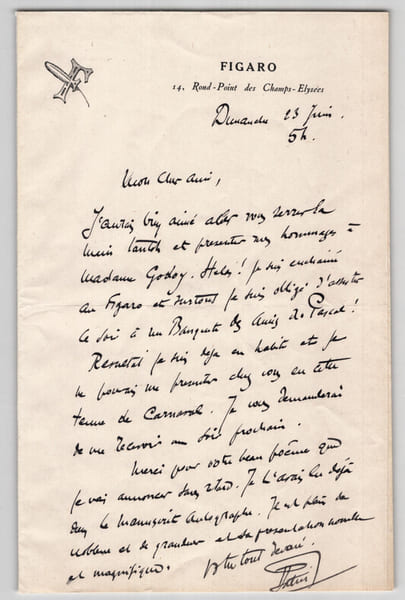 FIGARO
14, Rond-Point des Champs-Elysées
Dimanche 23 Juin.
5h.
Mon cher ami,
J'aurais bien aimé aller vous serrer la
main tantôt et présenter mes hommages à
Madame Godoy. Hélas! je suis enchainé
au Figaro et surtout je suis obligé d'assister
ce soir à un Banquet des Amis de Pascal!
Résultat je suis déjà en habit et je
ne pouvais me présenter chez vous en cette
tenue de Carnaval. Je vous demanderai
de me recevoir un soir prochain.
Merci pour votre beau poème que
je vais annoncer sans retard. Je l'avais lu déjà
dans le manuscrit autographe. Il est plein de
noblesse et de grandeur et sa présentation
et magnifique. Votre tout dévoué.